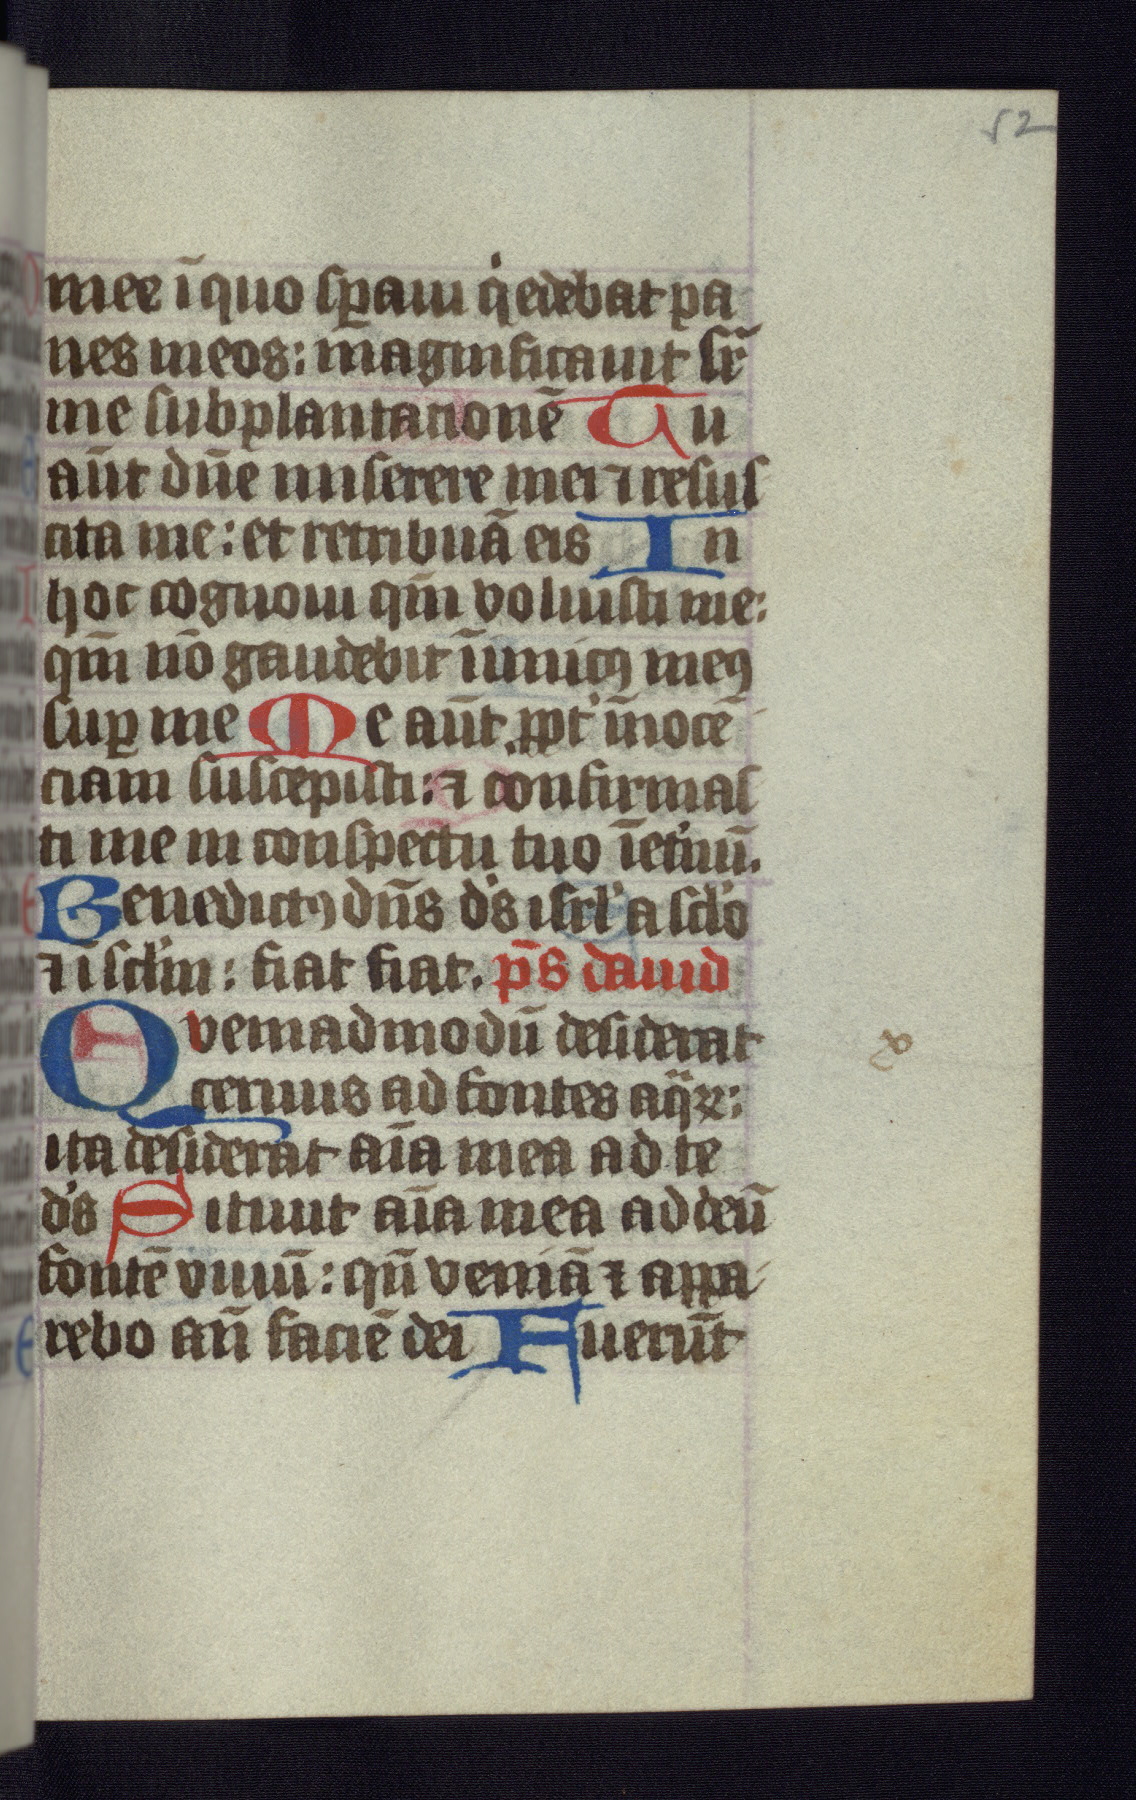 52
mee ī quo sꝑaui qͥ edebat pa
nes meos: magnificauit suꝑ
me subplantationē Tu
aūt dn̄e miserere mei ⁊ resus
cita me: et retribuā eis In
hoc cognoui qm̄ voluisti me:
qm̄ nō gaudebit īimicꝰ meꝰ
suꝑ me Me aūt ꝓpt' īnocē
ciam suscepisti: ⁊ confirmas
ti me in conspectu tuo ī et'nū.
Benedictꝰ dn̄s d's isrl' a sc̄lo
⁊ ī sc̄lm: fiat fiat. p̄s dauid
Quemadmodū desiderat
ceruus ad fontes aqꝝ:
ita desiderat aīa mea ad te
d's Sitiuit aīa mea ad deū
fontē viuū: qn̄ veniā ⁊ appa
rebo an̄ faciē dei Fuerūt